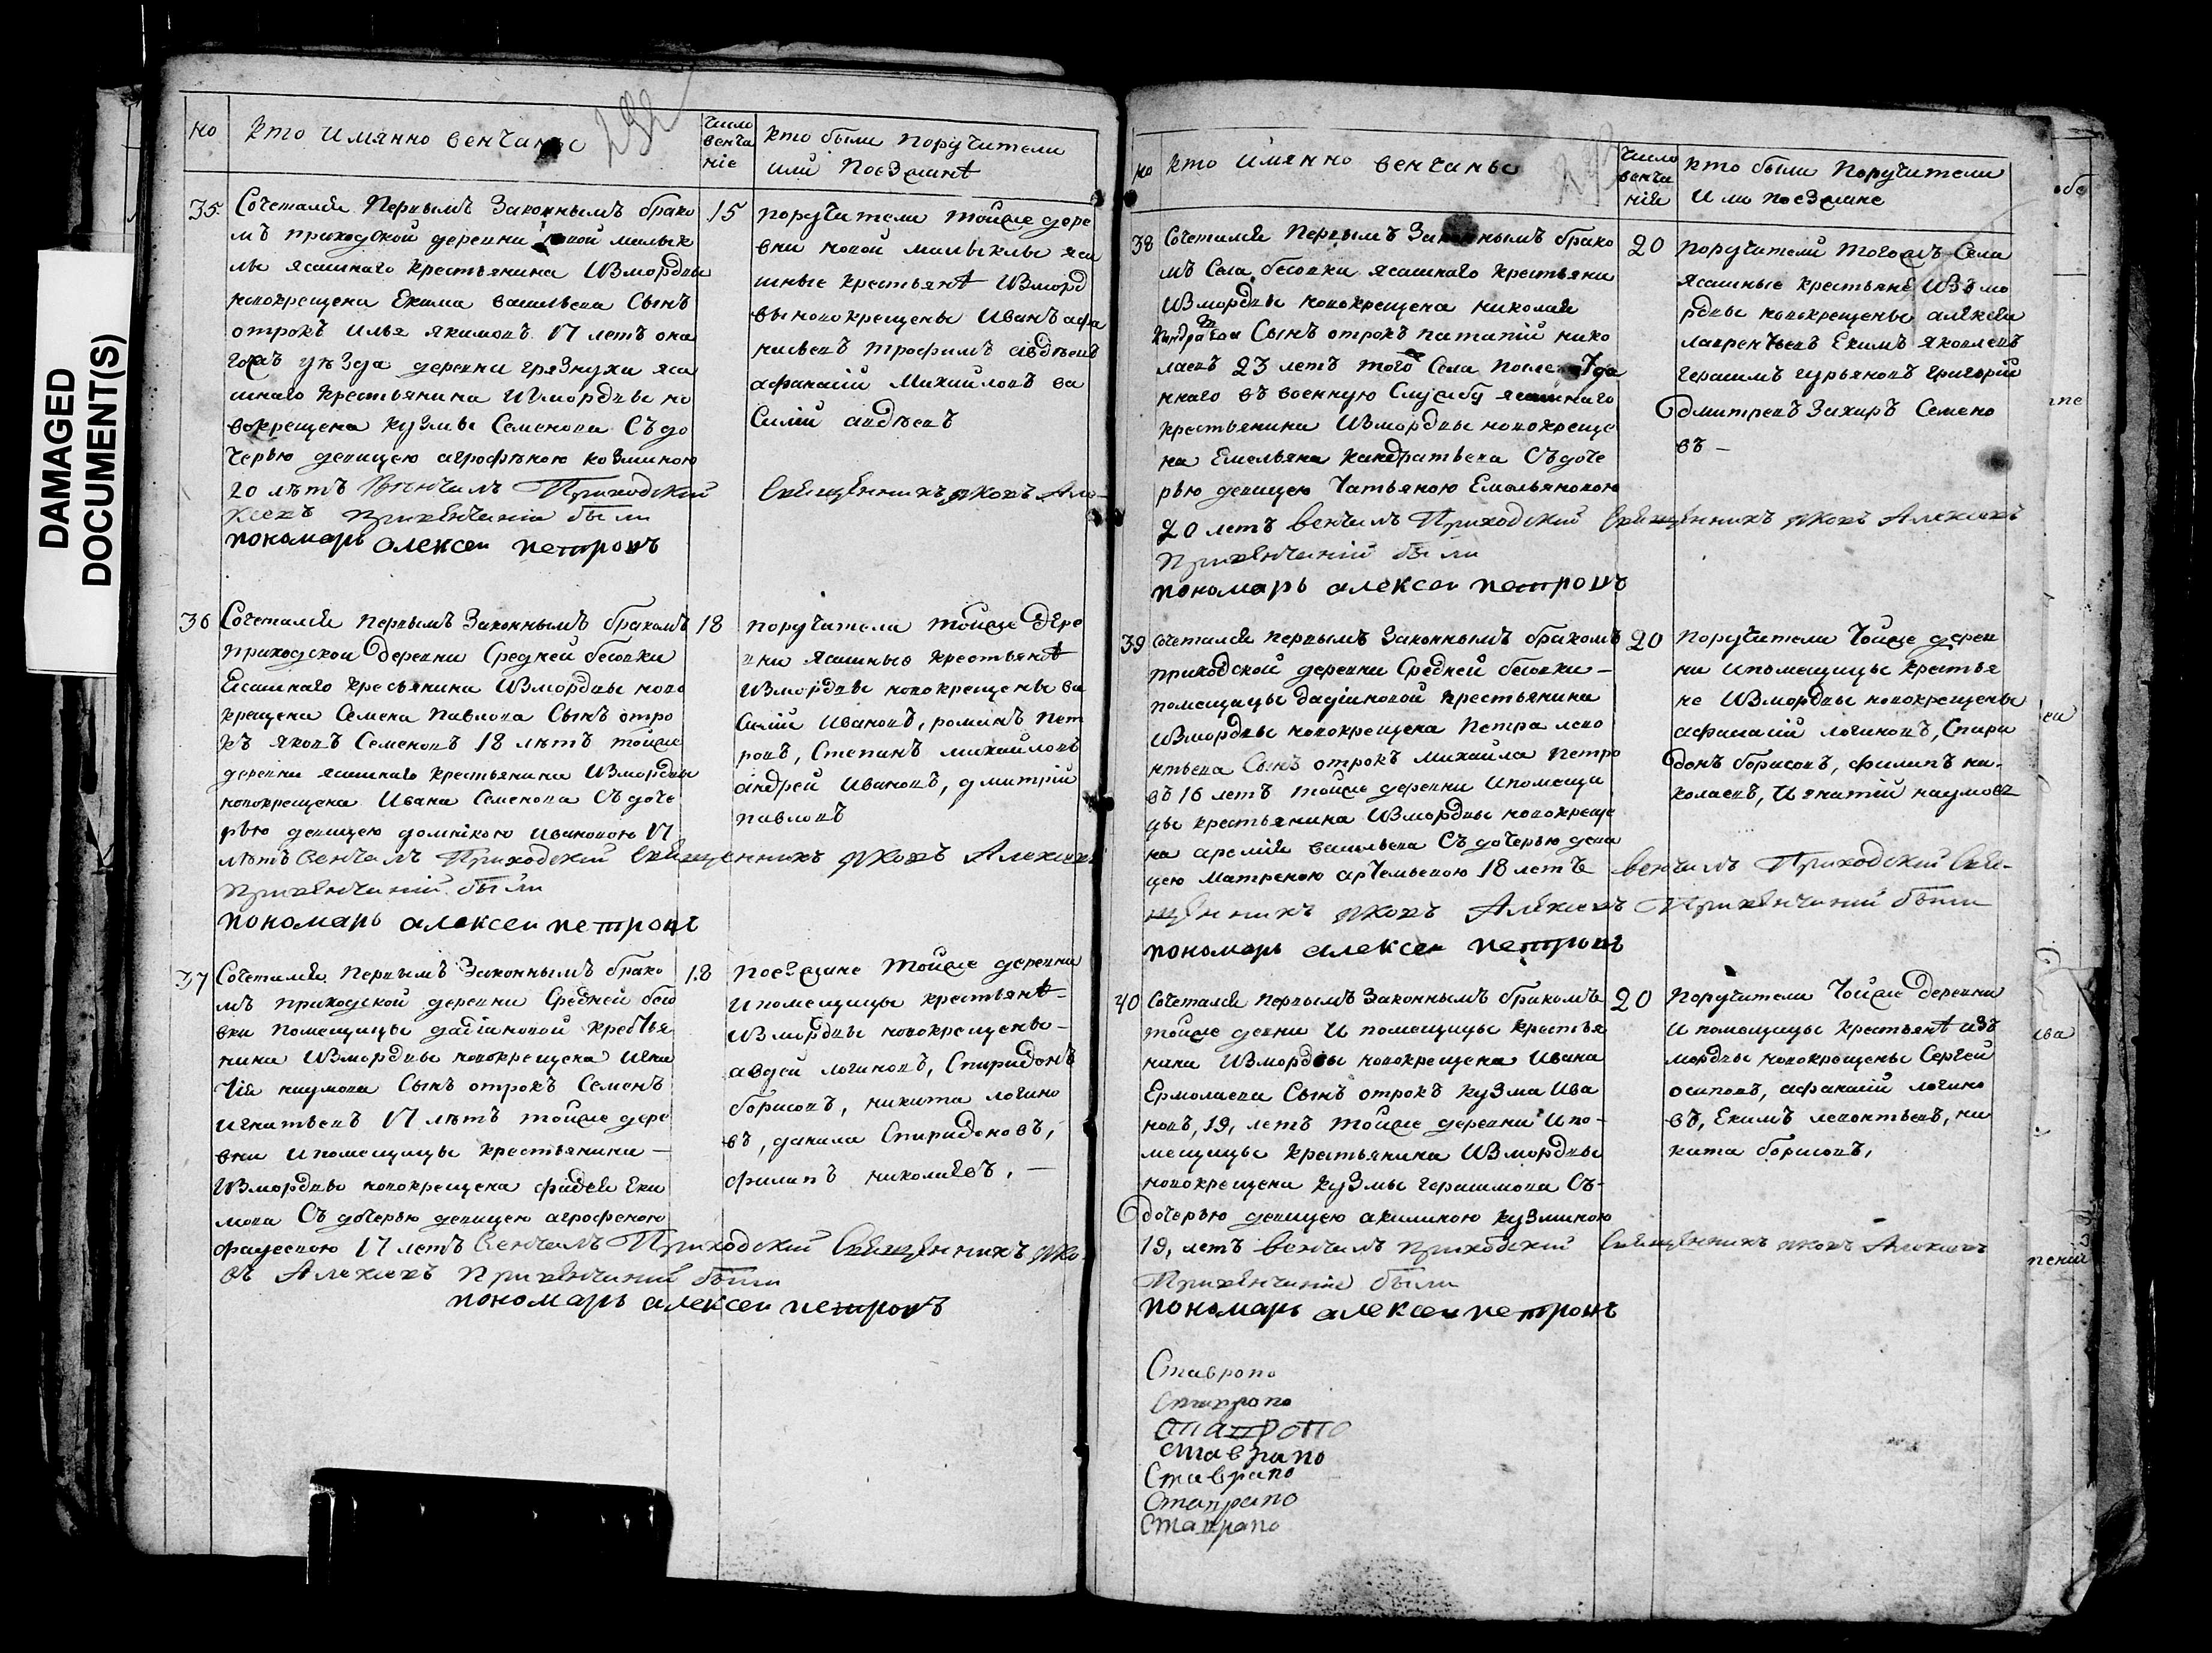 DAMAGED
DOCUMENT(S)
но
кто имянно венчаны
292
число
венча
ніе
кто были поручители
или поезжанѣ
35
Сочетался первымъ законнымъ брако
мъ приходской деревни новой малык
лы ясашнаго крестьянина измордвы
новокрещена Екима васильева Сынъ
отрокъ илья якимовъ 17 летъ она
гожъ уѣзда деревни грязнухи яса
шнаго крестьянина измордвы но
вокрещена кузмы Семенова Съ до
черью девицею агрофѣною козминою
20 лѣтъ Венчалъ Приходский Священникъ яковъ Але
ксеевъ привенчаніи были
пономарь алексеи петровъ
15
поручители тойже дере
вни новой малыклы яса
шные крестьянѣ изморд
вы новокрещены иванъ афа
насьевъ трофимъ авдѣевъ
афанасій михайловъ ва
силій авдѣевъ
36
Сочетался первымъ законнымъ бракомъ
приходской деревни Средней бесовки
Есашнаго кресьянина измордвы ново
крещена Семена павлова Сынъ отро
къ яковъ Семеновъ 18 лѣтъ тойже
деревни ясашнаго крестьянина измордвы
новокрещена ивана Семенова Съ доче
рью девицею домникою ивановою 17
лѣтъ венчалъ Приходский Священникъ яковъ Алексеевъ
привенчаний были
пономарь алексеи петровъ
18
поручатели тойже дере
вни ясашные крестьянѣ
измордвы новокрещены ва
силій ивановъ, романъ пет
ровъ, Степанъ михайловъ
андрей ивановъ, дмитрій
павловъ
37
Сочетался первымъ законнымъ брако
мъ приходской деревни Средней бесо
вки помещицы дадіановой крестья
нина измордвы новокрещена игна
тія наумова Сынъ отрокъ Семенъ
игнатьевъ 17 лѣтъ тойже дере
вни ипомещицы крестьянина —
измордвы новокрещена фадея Еки
мова Съ дочерью девицею агрофеною
фадеевою 17 летъ венчалъ Приходский Священникъ яко
въ Алексеевъ привенчаний были
пономарь алексеи петровъ
18
поезжане тойже деревни
ипомещицы крестьянѣ —
измордвы новокрещены —
авдей логиновъ, Спиридонъ
борисовъ, никита логино
въ, данила Спиридоновъ,
филипъ николаевъ. —
но
кто имянно венчаны
число
венча
ній
кто были поручители
или поезжане
38
Сочетался первымъ законнымъ брако
мъ Села бесовки ясашнаго крестьяни
измордвы новокрещена николая
кандратева Сынъ отрокъ патапій нико
лаевъ 23 летъ того Села
ннаго въ военную Службу ясашнаго
крестьянина измордвы новокреще
на Емельяна кандратьева Съ доче
рью девицею татьяною Емельяновою
20 летъ венчалъ Приходский Священникъ яковъ Алексеевъ
привенчаній были
пономарь алексеи петровъ
20
поручатели тогожъ Села
ясашные крестьянѣ изъмо
рдвы новокрещены алексей
лаврентьевъ Екимъ яковлевъ
герасимъ гурьяновъ григорій
дмитревъ захаръ Семено
въ —
39
Сочетался первымъ законнымъ бракомъ
приходской деревни Средней бесовки —
помещицы дадіановой крестьянина
измордвы новокрещена петра лево
нтьева Сынъ отрокъ михайла петро
въ 16 летъ тойже деревни ипомещи
цы крестьянина измордвы новокреще
на арсемія васильева Съ дочерью деви
цею матреною артемьевою 18 летъ венчалъ Приходский Свя-
щенникъ яковъ Алексеевъ Привенчаний были
пономарь алексеи петровъ
20
поручители тойже дерев
ни ипомещицы крестья
не измордвы новокрещены
афанасій логиновъ, Спири
донъ борисовъ, филипъ ни-
колаевъ, игнатій наумовъ
40
Сочетался первымъ законнымъ бракомъ
тойже девни и помещицы крестья
нина измордвы новокрещена ивана
Ермолаева Сынъ отрокъ кузма ива
новъ, 19, летъ тойже деревни ипо-
мещицы крестьянина измордвы
новокрещена кузмы герасимова Съ-
дочерью девицею акилиною кузминою
19, летъ венчалъ приходский Священникъ яковъ Алексеевъ
Привенчаніи были
пономарь алексеи петровъ
20
поручители тойже деревни
и помещицы крестьянѣ изъ
мордвы новокрещены Сергей
осиповъ, афанасій логино
въ, Екимъ левонтьевъ, ни
кита борисовъ,
Ставропо
Ставропо
Ставропо
Ставрапо
Ставрапо
Ставрапо
Ставрапо